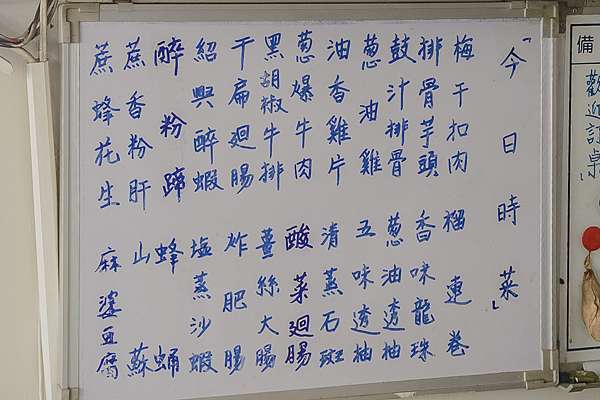 「今日時菜」
梅干扣肉
排骨芋頭
鼓汁排骨
葱油雞
油香雞片
葱爆牛肉
黑胡椒牛排
干扁迴腸
紹興醉蝦
醉粉蹄
蔗香粉肝
蔗蜂花生
榴連卷
香味龍珠
葱油透抽
五味透抽
清蒸石斑
酸菜迴腸
薑絲大腸
炸肥腸
塩蒸沙蝦
蜂蛹
山蘇
麻婆豆腐
備
歡迎訂桌」